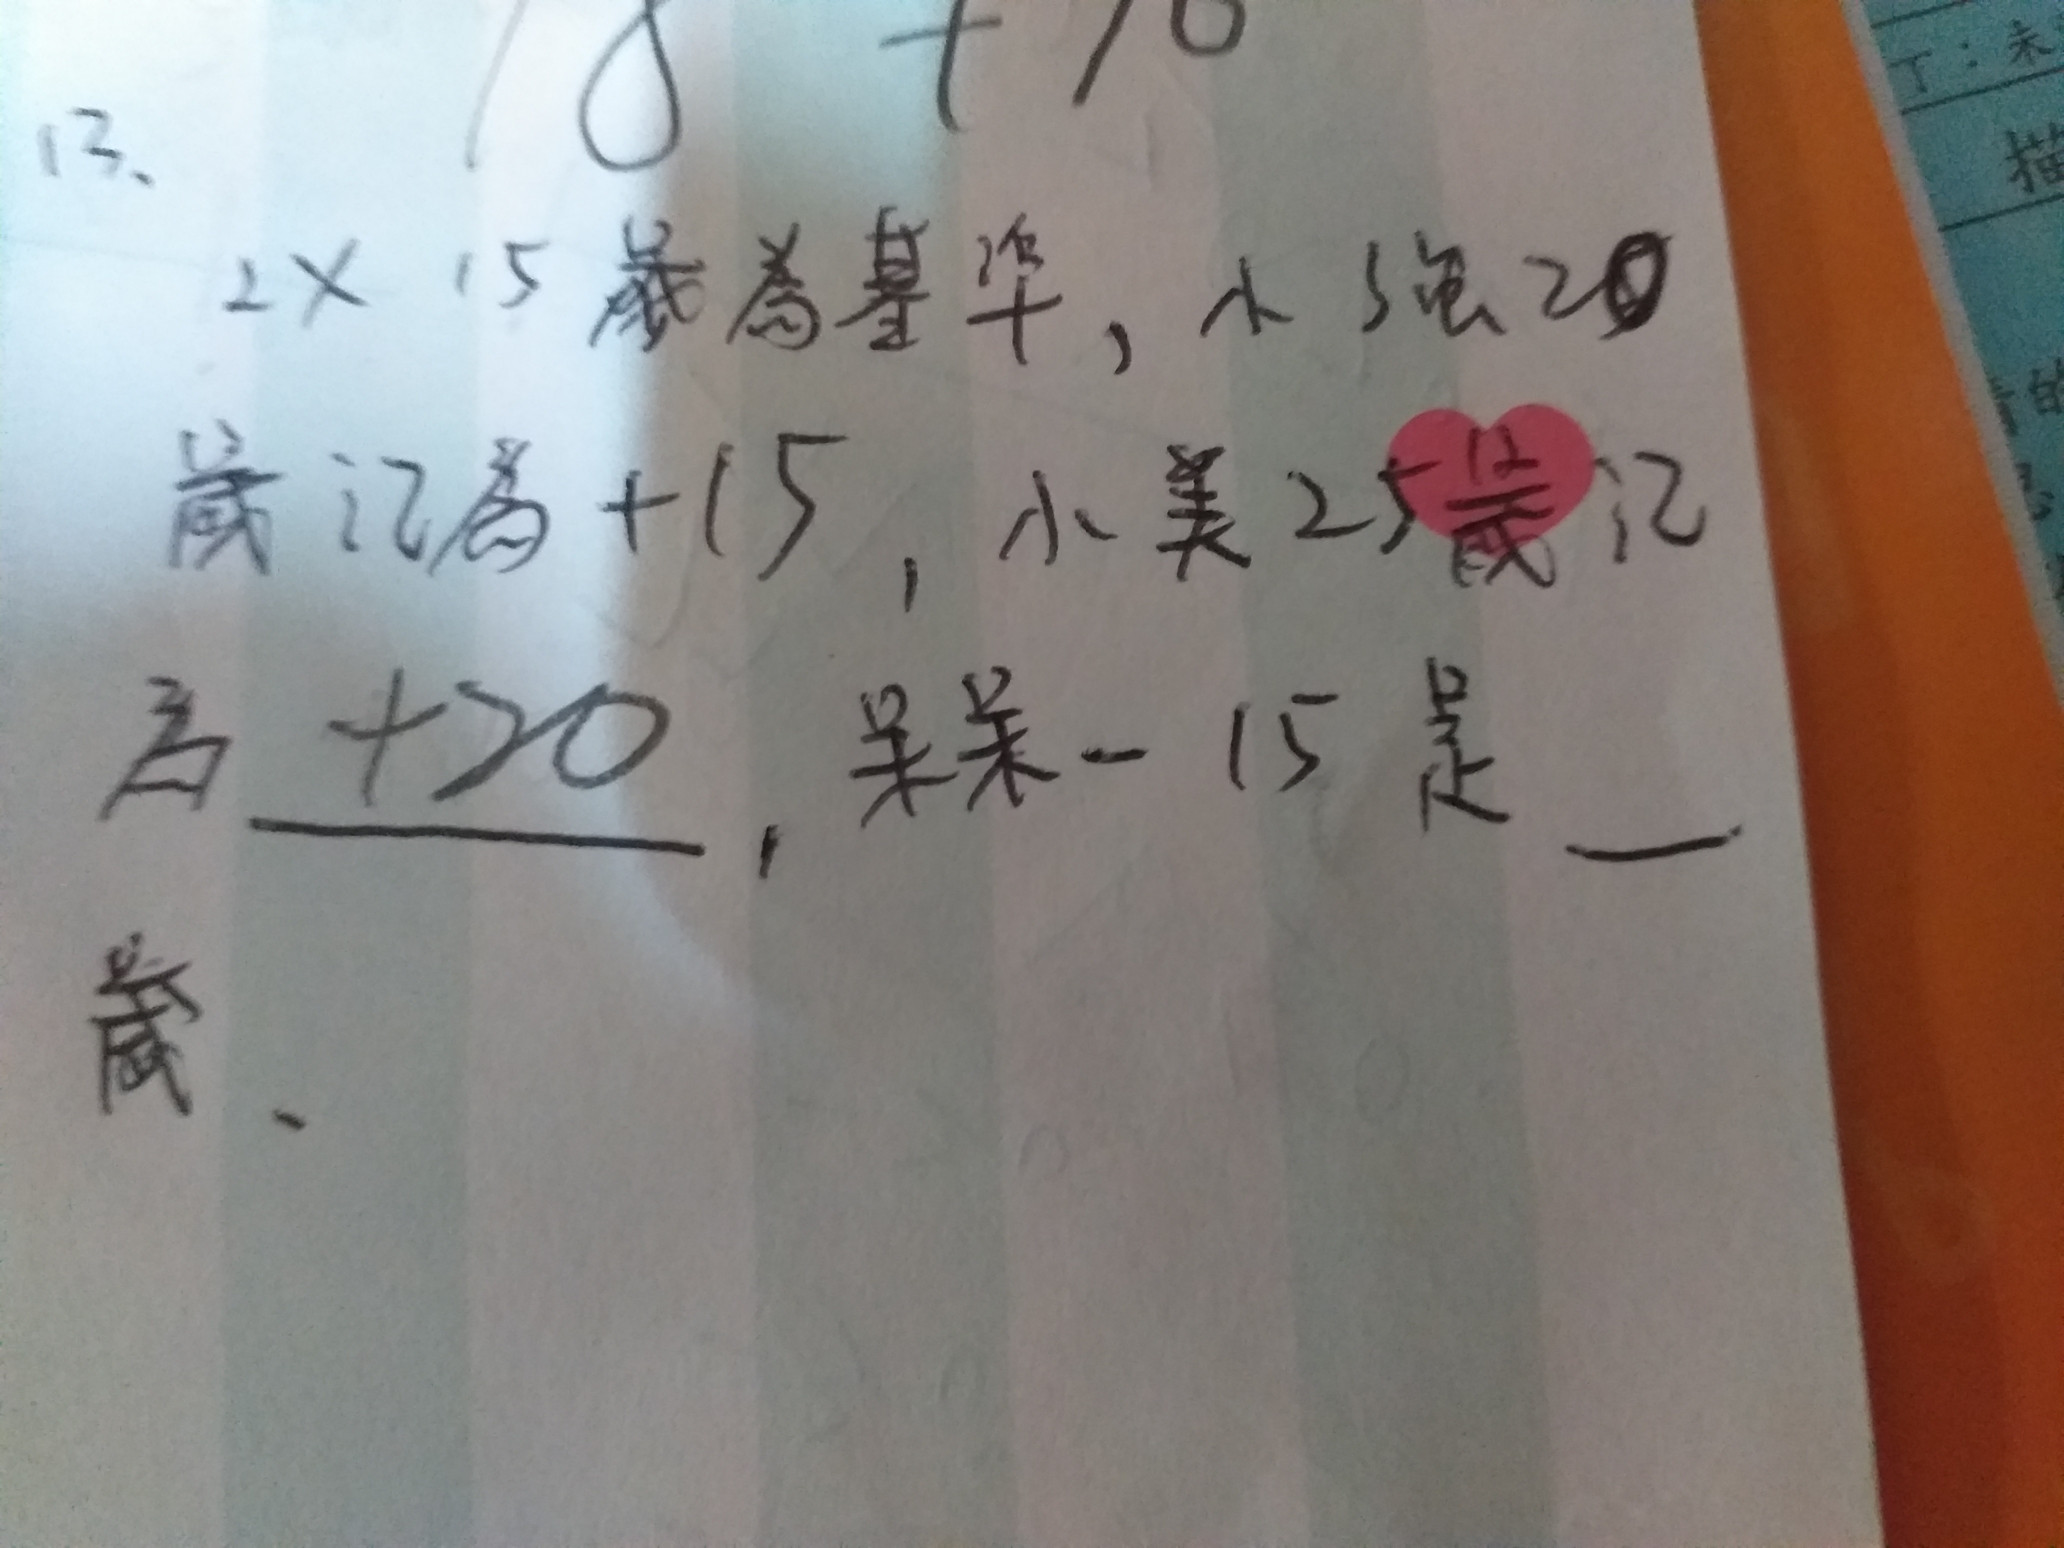 18 + 10
13、
以 15 歲為基準，小強20
歲記為+15，小美25歲記
為 +20，呆呆-15是__
歲、
丁：未
描
的